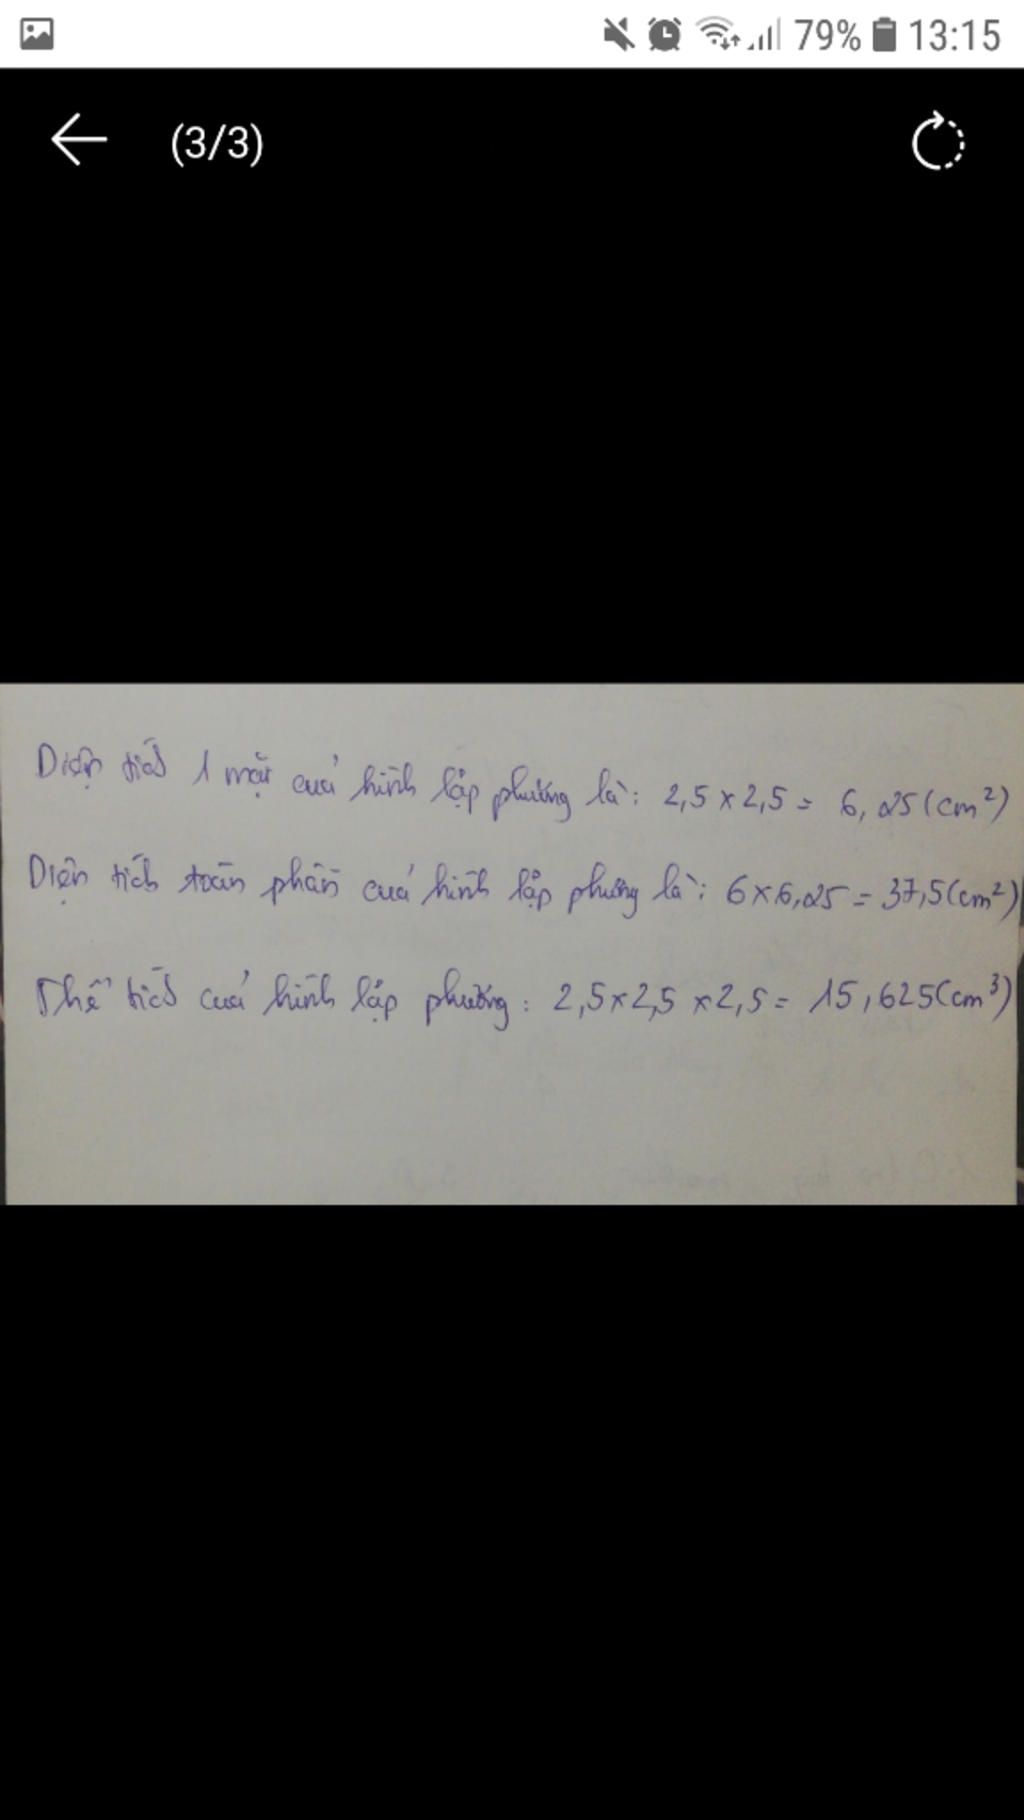 79% 13:15
(3/3)
Diện tích 1 mặt của hình lập phương là: 2,5 x 2,5 = 6,25 (cm²)
Diện tích toàn phần của hình lập phương là: 6 x 6,25 = 37,5 (cm²)
Thể tích của hình lập phương: 2,5 x 2,5 x 2,5 = 15,625 (cm³)